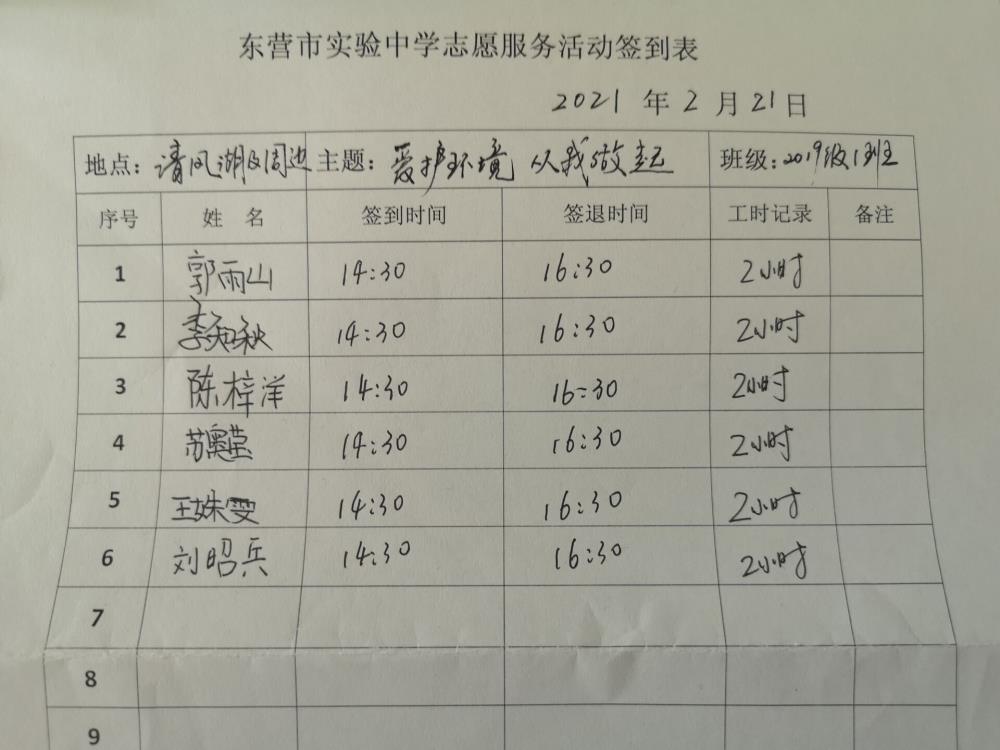 东营市实验中学志愿服务活动签到表
2021 年 2 月 21 日
地点：清风湖及周边 主题：爱护环境 从我做起 班级：2019级1班
序号 姓 名 签到时间 签退时间 工时记录 备注
1 郭雨山 14:30 16:30 2小时
2 李知秋 14:30 16:30 2小时
3 陈梓洋 14:30 16:30 2小时
4 14:30 16:30 2小时
5 王姝雯 14:30 16:30 2小时
6 刘昭兵 14:30 16:30 2小时
7
8
9